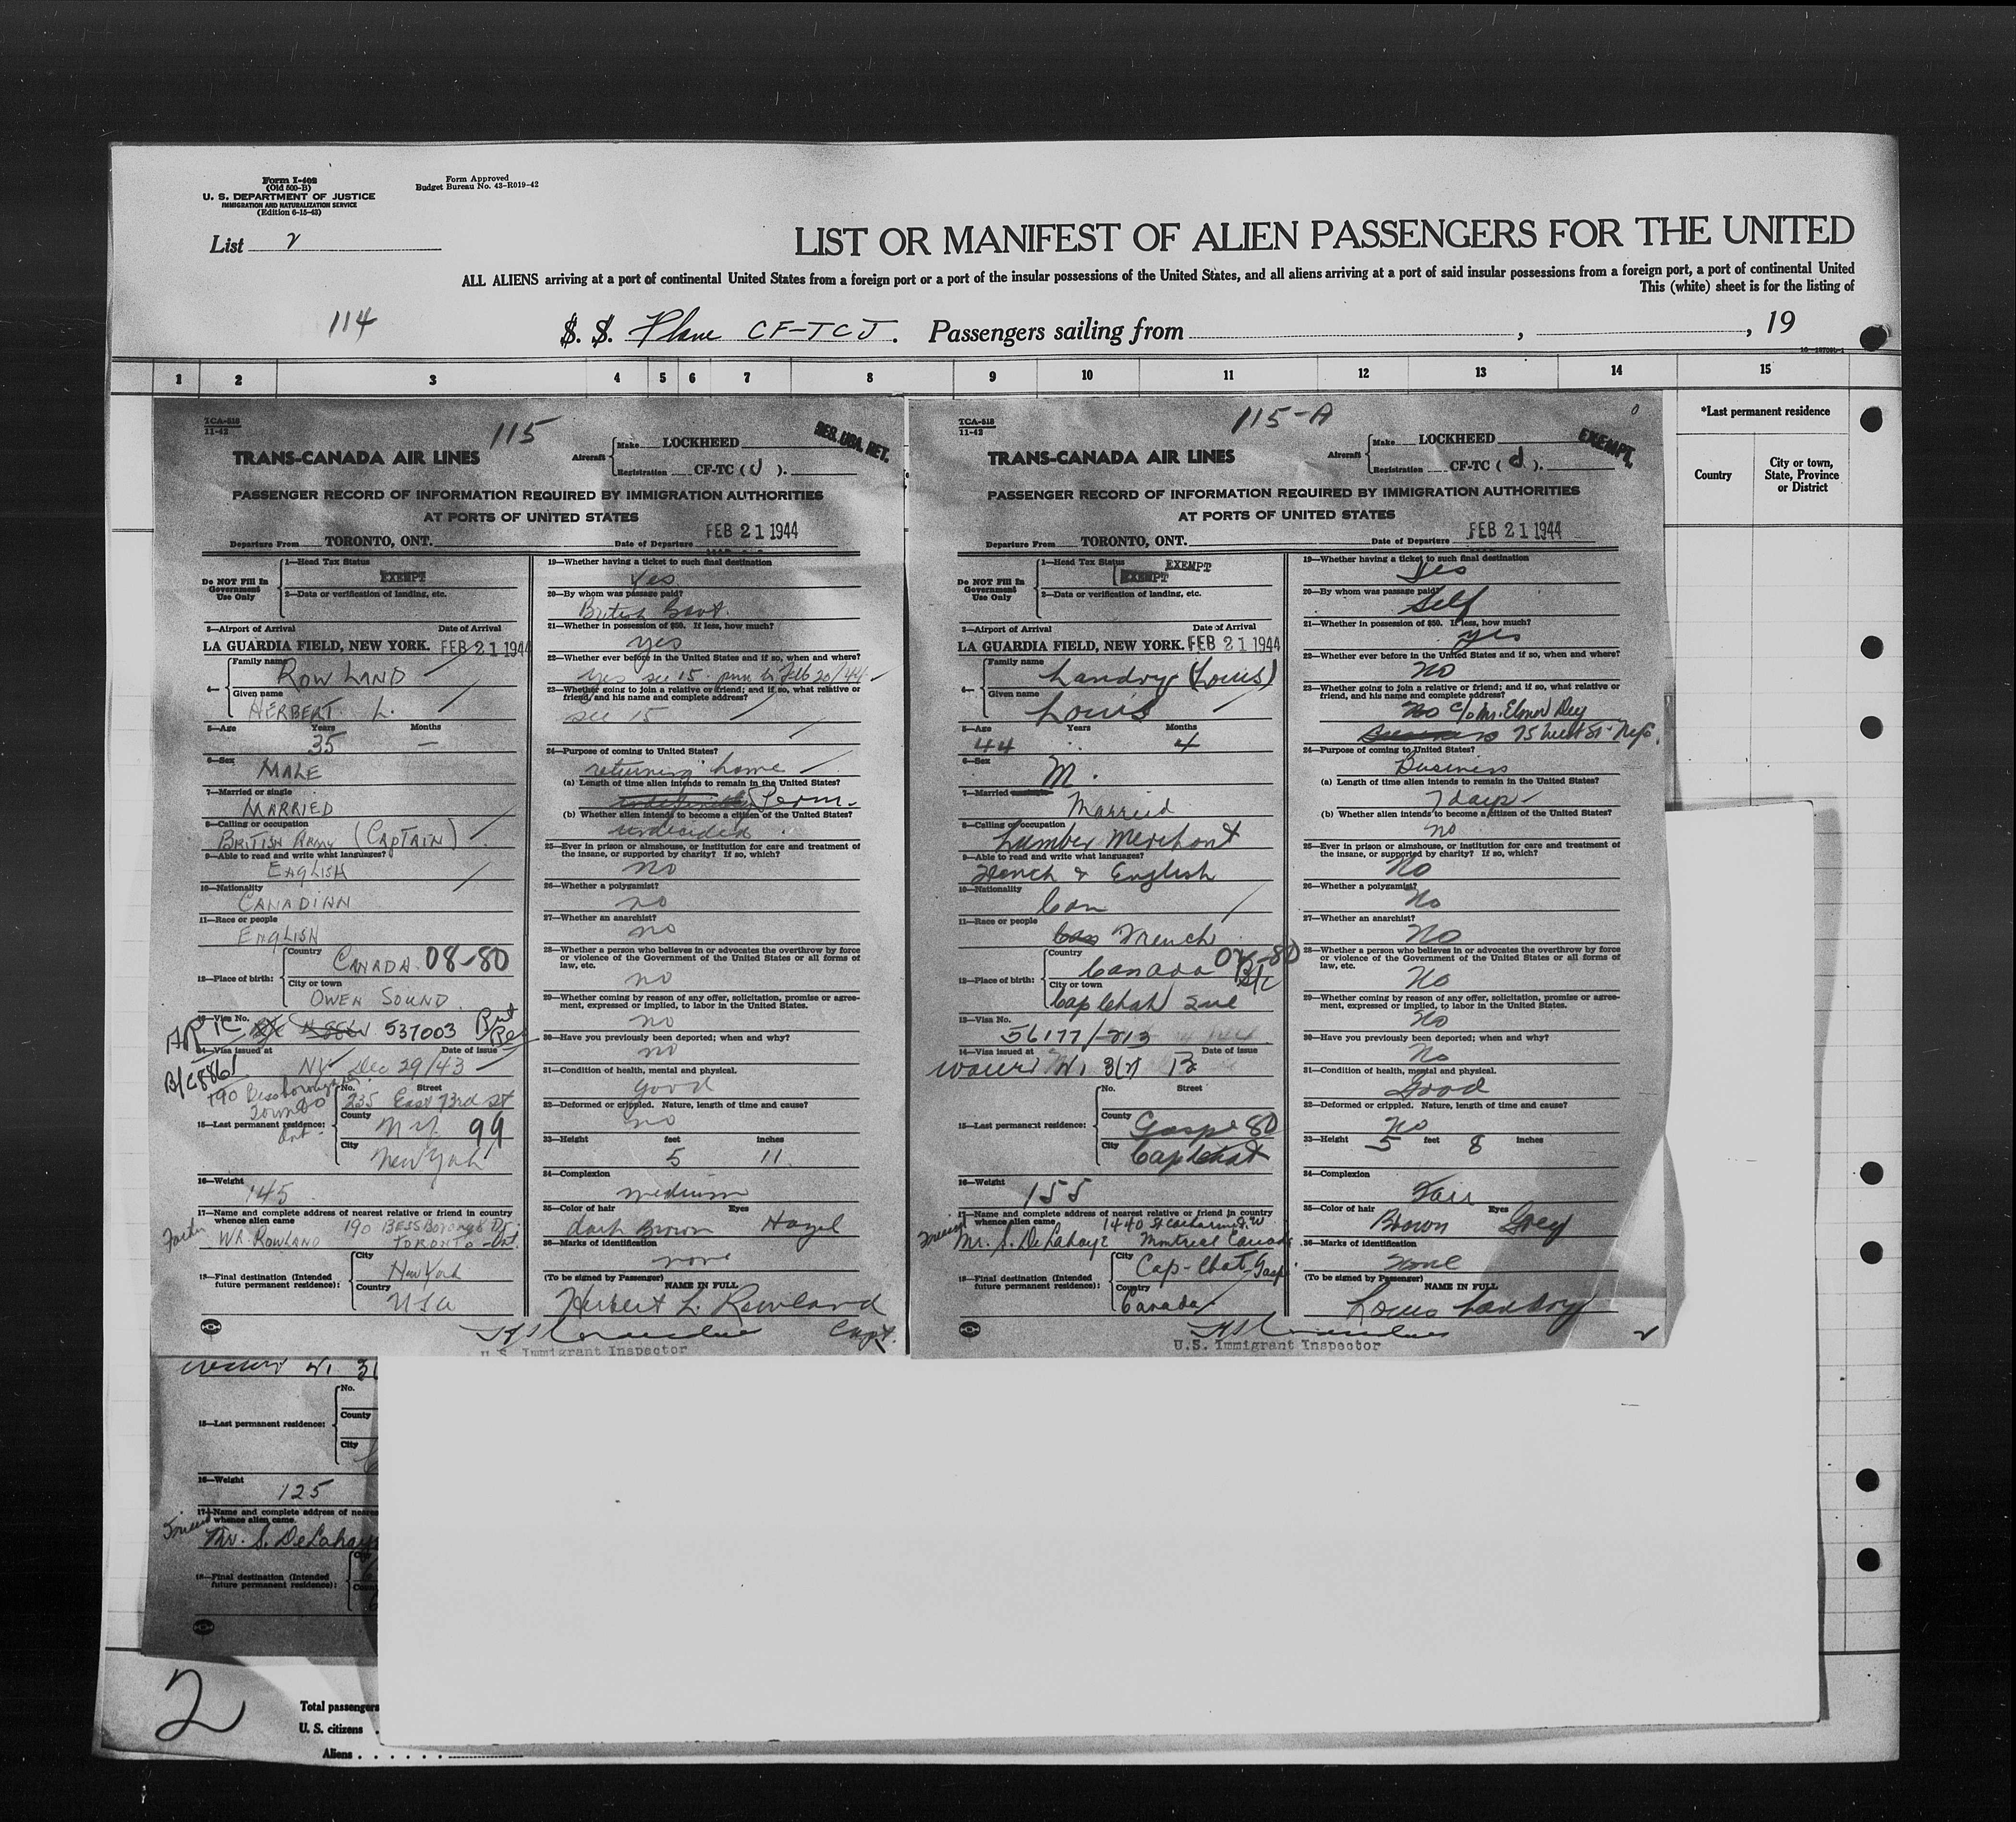 Form I-402
(Old 500-B)
U. S. DEPARTMENT OF JUSTICE
IMMIGRATION AND NATURALIZATION SERVICE
(Edition 6-15-43)
Form Approved
Budget Bureau No. 43-R019-42
List 2
LIST OR MANIFEST OF ALIEN PASSENGERS FOR THE UNITED
ALL ALIENS arriving at a port of continental United States from a foreign port or a port of the insular possessions of the United States, and all aliens arriving at a port of said insular possessions from a foreign port, a port of continental United
This (white) sheet is for the listing of
114
S. S. Plane CF-TCJ. Passengers sailing from , , 19
1 2 3 4 5 6 7 8 9 10 11 12 13 14 15
*Last permanent residence
Country
City or town, State, Province or District
TCA-518
11-42
115
TRANS-CANADA AIR LINES
Aircraft
Make LOCKHEED
Registration CF-TC (J).
PASSENGER RECORD OF INFORMATION REQUIRED BY IMMIGRATION AUTHORITIES
AT PORTS OF UNITED STATES
Departure From TORONTO, ONT. Date of Departure FEB 21 1944
Do NOT Fill In Government Use Only
1—Head Tax Status EXEMPT
2—Data or verification of landing, etc.
3—Airport of Arrival Date of Arrival
LA GUARDIA FIELD, NEW YORK. FEB 21 1944
4— Family name ROWLAND
Given name HERBERT L.
5—Age Years 35 Months —
6—Sex MALE
7—Married or single MARRIED
8—Calling or occupation BRITISH ARMY (CAPTAIN)
9—Able to read and write what languages? ENGLISH
10—Nationality CANADIAN
11—Race or people ENGLISH
12—Place of birth: Country CANADA 08-80
City or town OWEN SOUND
13—Visa No. 537003
14—Visa issued at NY Date of issue Dec 29/43
B/C 8861
190 Bessborough
Toronto
Ont.
15—Last permanent residence: No. 235 Street East 73rd St
County N.Y. 99
City New York
16—Weight 145
17—Name and complete address of nearest relative or friend in country whence alien came 190 BESSBorough Dr.
Father WR. ROWLAND TORONTO - Ont.
18—Final destination (Intended future permanent residence): City New York
Country USA
19—Whether having a ticket to such final destination Yes
20—By whom was passage paid? British Govt.
21—Whether in possession of $50. If less, how much? yes
22—Whether ever before in the United States and if so, when and where?
yes see 15 to Feb 20/44
23—Whether going to join a relative or friend; and if so, what relative or friend, and his name and complete address?
see 15
24—Purpose of coming to United States? returning home
(a) Length of time alien intends to remain in the United States? Perm.
(b) Whether alien intends to become a citizen of the United States? undecided
25—Ever in prison or almshouse, or institution for care and treatment of the insane, or supported by charity? If so, which? No
26—Whether a polygamist? no
27—Whether an anarchist? no
28—Whether a person who believes in or advocates the overthrow by force or violence of the Government of the United States or all forms of law, etc. no
29—Whether coming by reason of any offer, solicitation, promise or agreement, expressed or implied, to labor in the United States. no
30—Have you previously been deported; when and why? no
31—Condition of health, mental and physical. good
32—Deformed or crippled. Nature, length of time and cause? no
33—Height 5 feet 11 inches
34—Complexion medium
35—Color of hair dark Brown Eyes Hazel
36—Marks of identification none
(To be signed by Passenger) NAME IN FULL
Herbert L. Rowland
Capt.
U.S. Immigrant Inspector
TCA-518
11-42
115-A
TRANS-CANADA AIR LINES
Aircraft
Make LOCKHEED
Registration CF-TC (J).
EXEMPT.
PASSENGER RECORD OF INFORMATION REQUIRED BY IMMIGRATION AUTHORITIES
AT PORTS OF UNITED STATES
Departure From TORONTO, ONT. Date of Departure FEB 21 1944
Do NOT Fill In Government Use Only
1—Head Tax Status EXEMPT EXEMPT
2—Data or verification of landing, etc.
3—Airport of Arrival Date of Arrival
LA GUARDIA FIELD, NEW YORK. FEB 21 1944
4— Family name Landry (Louis)
Given name Louis
5—Age 44 Years Months 4
6—Sex M.
7—Married Married
8—Calling or occupation Lumber Merchant
9—Able to read and write what languages? French & English
10—Nationality Can
11—Race or people French
12—Place of birth: Country Canada
B/C
City or town Cap Chat Que
13—Visa No. 56177/213
14—Visa issued at Date of issue
waived
15—Last permanent residence: No. Street
County Gaspe 80
City Cap Chat
16—Weight 155
17—Name and complete address of nearest relative or friend in country whence alien came 1440 St Catharine St. W
Friend Mr. S. DeLahaye Montreal Canada
18—Final destination (Intended future permanent residence): City Cap-Chat-Gaspe
Country Canada
19—Whether having a ticket to such final destination Yes
20—By whom was passage paid? Self
21—Whether in possession of $50. If less, how much? yes
22—Whether ever before in the United States and if so, when and where? No
23—Whether going to join a relative or friend; and if so, what relative or friend, and his name and complete address?
No c/o Mr. Elmer Dey
75 West St. NYC.
24—Purpose of coming to United States? Business
(a) Length of time alien intends to remain in the United States? 7 days
(b) Whether alien intends to become a citizen of the United States? no
25—Ever in prison or almshouse, or institution for care and treatment of the insane, or supported by charity? If so, which? No
26—Whether a polygamist? No
27—Whether an anarchist? No
28—Whether a person who believes in or advocates the overthrow by force or violence of the Government of the United States or all forms of law, etc. No
29—Whether coming by reason of any offer, solicitation, promise or agreement, expressed or implied, to labor in the United States. No
30—Have you previously been deported; when and why? No
31—Condition of health, mental and physical. Good
32—Deformed or crippled. Nature, length of time and cause? No
33—Height 5 feet 8 inches
34—Complexion Fair
35—Color of hair Brown Eyes Grey
36—Marks of identification None
(To be signed by Passenger) NAME IN FULL
Louis Landry
U.S. Immigrant Inspector
15—Last permanent residence: No.
County
City
16—Weight 125
17—Name and complete address of neares
whence alien came.
Friend Mr. S. DeLahay
18—Final destination (Intended future permanent residence):
2
Total passengers
U. S. citizens
Aliens